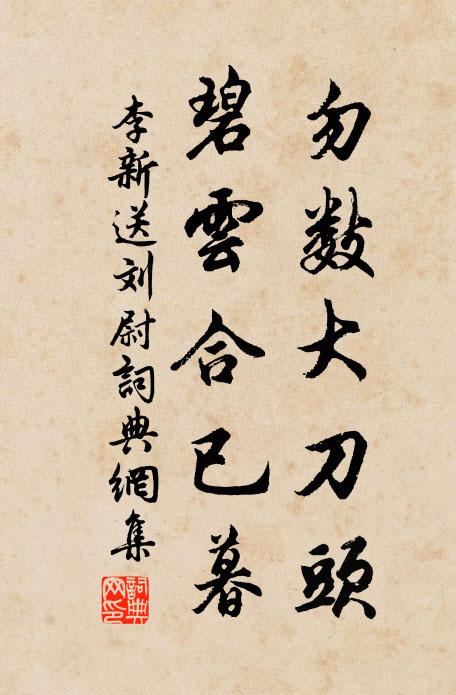 勿数大刀頭
碧雲合已暮
李新送刘尉詞典網集
詞典網印